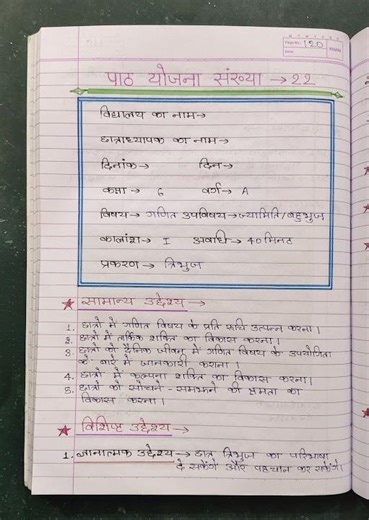 Page No. 120
Date
पाठ योजना संख्या → 22
विद्यालय का नाम→
छात्राध्यापक का नाम→
दिनांक→ दिन→
कक्षा → 6 वर्ग→ A
विषय→ गणित उपविषय→ज्यामिति/बहुभुज
कालांश→ I अवधि→ 40 मिनट
प्रकरण → त्रिभुज
★ सामान्य उद्देश्य →
1. छात्रों में गणित विषय के प्रति रूचि उत्पन्न करना।
2. छात्रों में तार्किक शक्ति का विकास करना।
3. छात्रों को दैनिक जीवन में गणित विषय के उपयोगिता
के बारे में जानकारी कराना।
4. छात्रों में कल्पना शक्ति का विकास करना।
5. छात्रों को सोचने - समझने की क्षमता का
विकास करना।
★ विशिष्ट उद्देश्य →
1. ज्ञानात्मक उद्देश्य → छात्र त्रिभुज का परिभाषा
दे सकेंगे और पहचान कर सकेंगे।